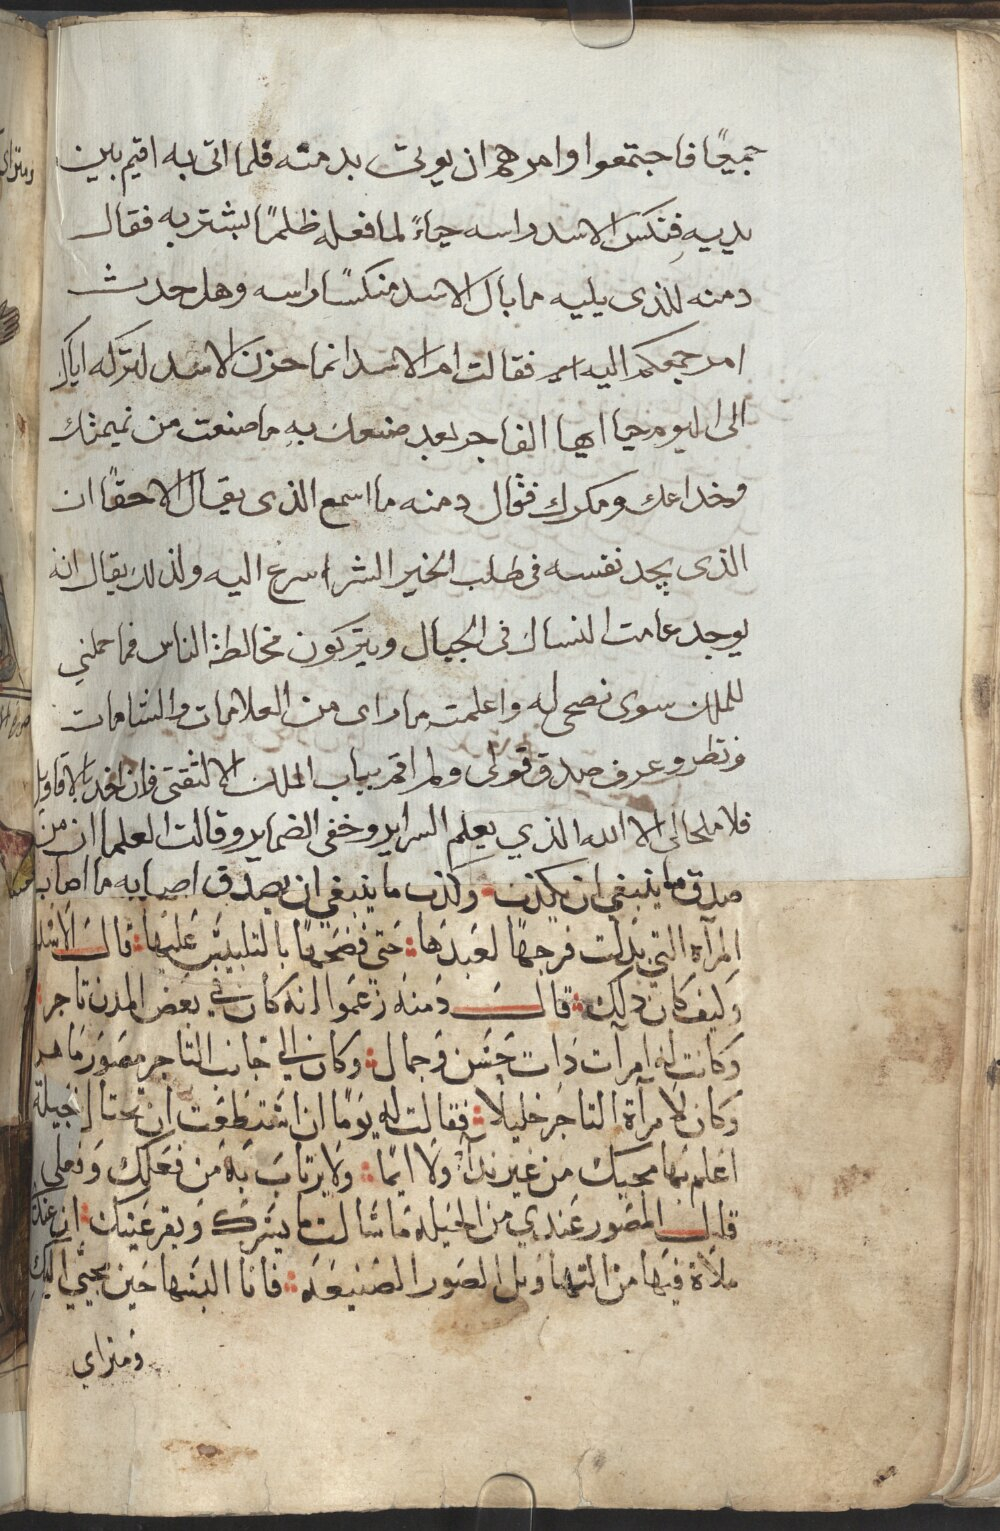 جميعًا فاجتمعوا وامرهم ان يوتى بدمنه فلما اتى به اقيم بين
يديهِ فنكس الاسد راسه حياءً لما فعله ظلمًا بشتربه فقال
دمنه للذى يليه ما بال الاسد منكسًا راسه وهل حدث
امر جمعكم اليه فقالت ام الاسد انما حزن الاسد لتركه اياك
الى اليوم حيا ايها الفاجر بعد صنعك به ما صنعت من نميمتك
وخداعك ومكرك فقال دمنه ما اسمع الذى يقال الا حقًا ان
الذى يجد نفسه فى طلب الخير الشر اسرع اليه ولذلك يقال انه
يوجد عامت النساك فى الجبال ويتركون مخالطة الناس فما حملني
للملك سوى نصحى له واعلمته ما راى من العلامات والشامات
ونظر وعرف صدق قولى ولم اقم بباب الملك الا لثقتى فان اخد بالاقاويل
فلا ملجا لى الا الله الذي يعلم السراير وخفى الضماير وقالت العلما ان من
صدق ما ينبغي ان يكذب وكذب ما ينبغي ان يصدق اصابه ما اصاب
المرآة التي بدلت فرجها لعبدها حتى فضحها بالتلبيس عليها قال الاسد
وكيف كان دلك قال دمنه زعموا انه كان في بعض المدن تاجر
وكانت له امرآت دات حسن وجمال وكان الي جانب التاجر مصور ماهر
وكان لامرآة التاجر خليلا فقالت له يومًا ان استطعت ان تحتال بحيلة
اعلم بها مجيك من غير ندآء ولا ايما ولا يرتاب به من فعلك وفعلي
قال المصور عندي من الحيله ما سالت ما يسرك ويقر عينك ان عندي
ملاة فيها من التهاويل الصور المصنيعه فانا البسها حين مجيي اليك
ومتراي